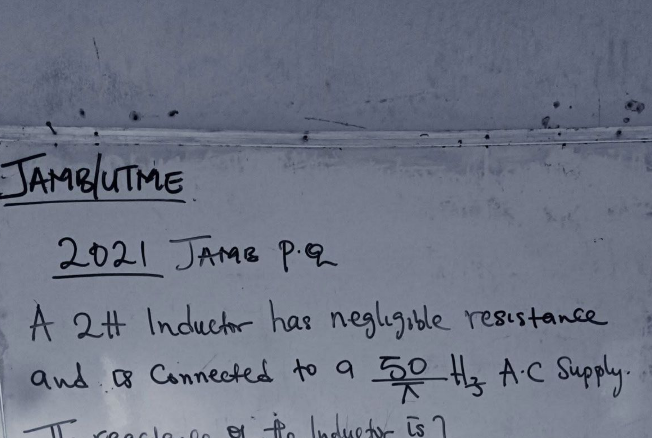 JAMB/UTME
2021 JAMB P.Q
A 2H Inductor has negligible resistance
and is Connected to a 50/π Hz A.C Supply.
Inductor is?